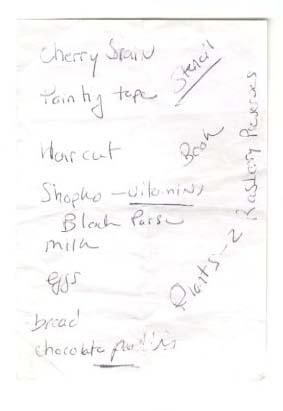 Cherry Stain
Painting tape
Stencil
Haircut
Book
Shopko - vitamins
Black Purse
milk
eggs
bread
chocolate
Plants - 2
Raspberry Preserves